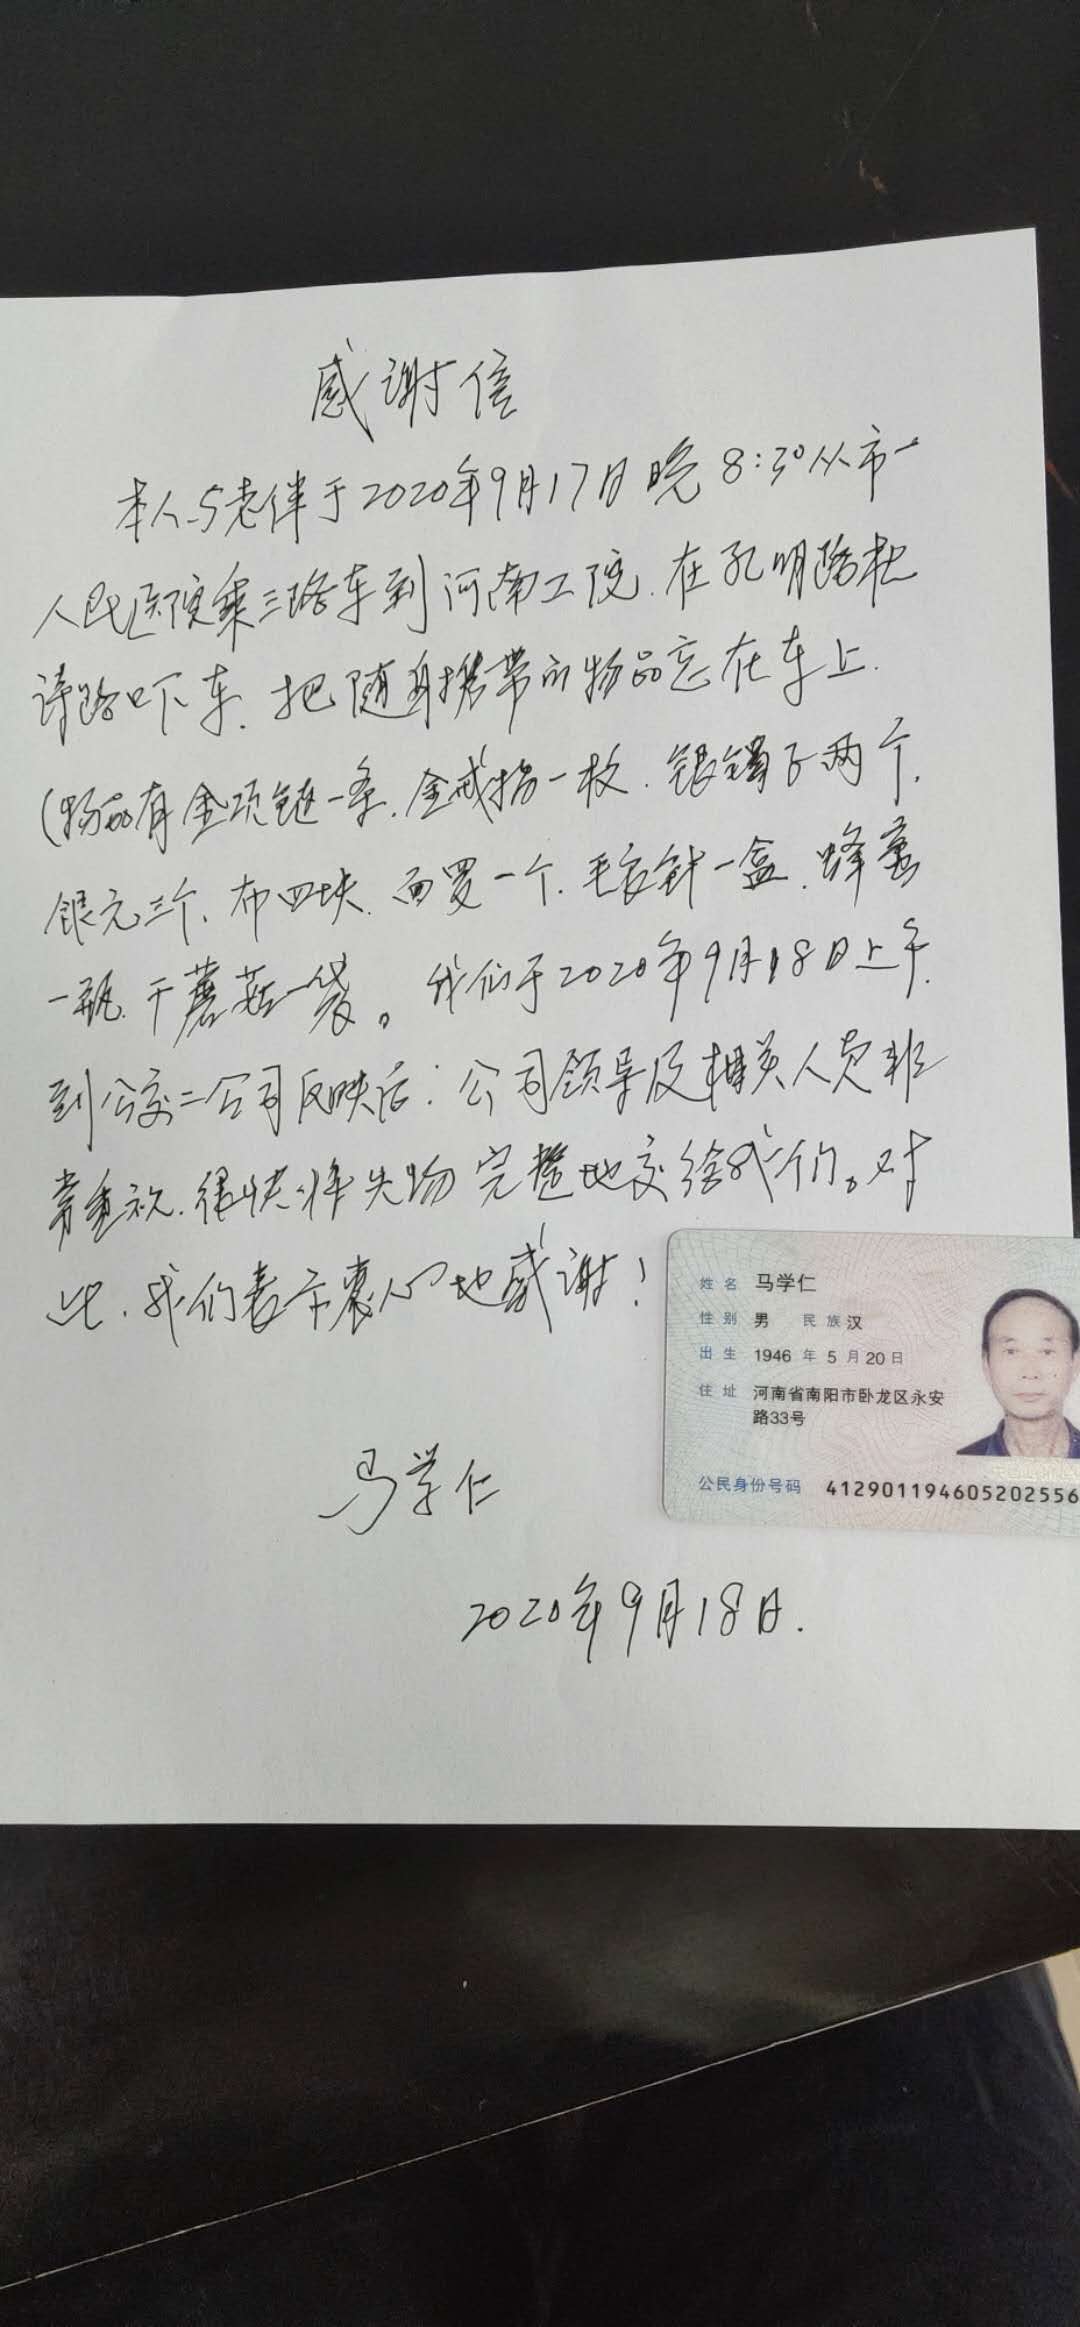 感谢信
本人与老伴于2020年9月17日晚8:30从市一
人民医院乘三路车到河南工院.在孔明路杜
诗路口下车.把随身携带的物品忘在车上.
(物品有金项链一条.金戒指一枚.银镯子两个.
银元三个、布四块.面罗一个.毛衣针一盒.蜂蜜
一瓶.干蘑菇一袋。我们于2020年9月18日上午.
到公交二公司反映后:公司领导及相关人员非
常重视.很快将失物完整地交给我们。对
此.我们表示衷心地感谢!
姓名 马学仁
性别 男 民族 汉
出生 1946 年 5 月 20 日
住址 河南省南阳市卧龙区永安
路33号
公民身份号码 412901194605202556
马学仁
2020年9月18日.